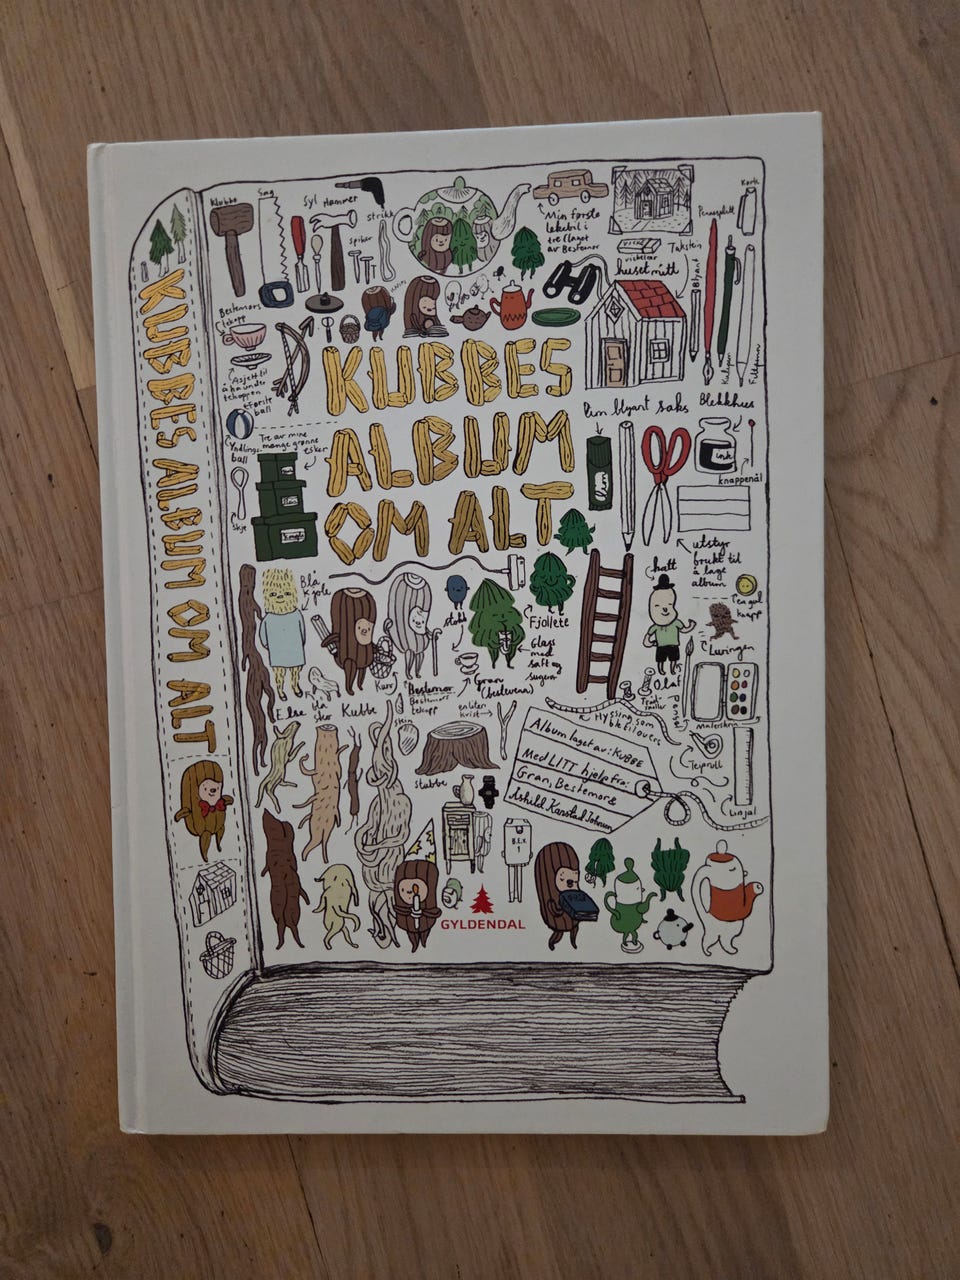 KUBBES ALBUM OM ALT
Klubbe
Sag
Syl
Hammer
Strikk
Spiker
Min første
lekebil i
tre (laget
av Bestemor
viske
Takstein
huset mitt
Kork
Blyant
Bestemors
tekopp
Asjett til
å ha under
tekoppen
Første
ball
Yndlings
ball
Tre av mine
mange grønne
esker
Skje
KUBBES
ALBUM
OM ALT
Lim blyant saks Blekkhus
Lim
ink
knappenål
utstyr
brukt til
å lage
album
hatt
Blå
kjole
stokk
Fjollete
Glass
med
saft og
sugerør
Gran
Kurv
Bestemor
Bestemors
tekopp
Else
blå
sko
Kubbe
stein
en liten
kvist
stubbe
Luringen
Olaf
Pensel
Malerskrin
Teiprull
Linjal
Album laget av: KUBBE
Med LITT hjelp fra:
Gran, Bestemor &
Åshild Kanstad Johnsen
GYLDENDAL